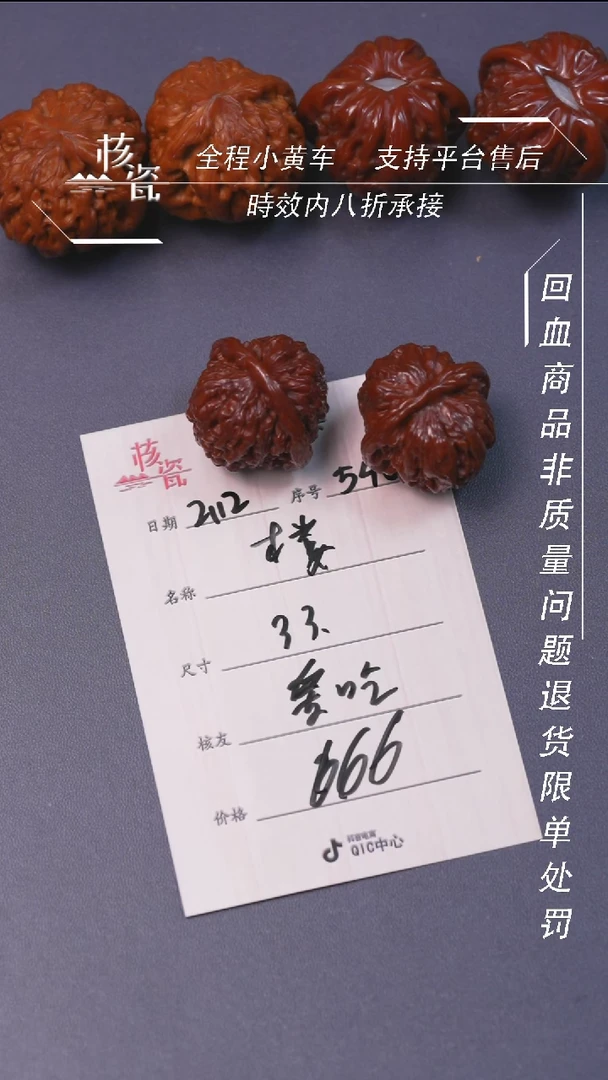 核瓷
全程小黄车 支持平台售后
時效内八折承接
回血商品非质量问题退货限单处罚
核瓷
日期 2112 序号
名称
尺寸 33.
核友
价格 666
抖音电商
QIC中心